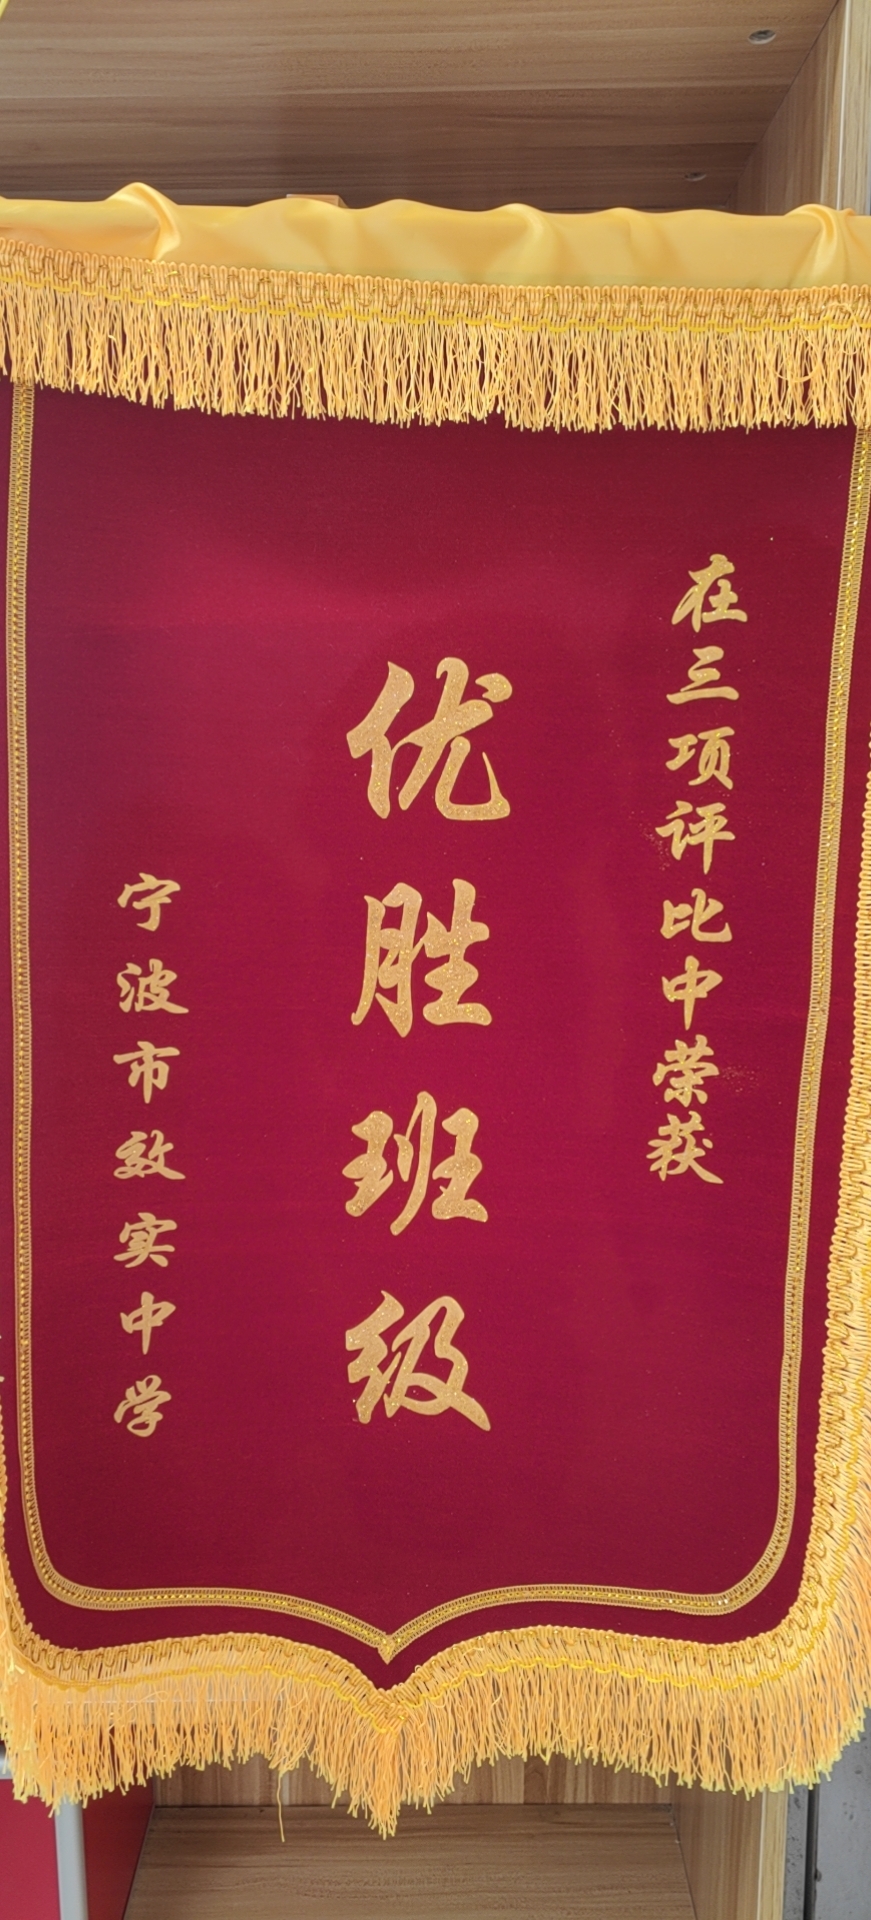 在三项评比中荣获
优胜班级
宁波市效实中学